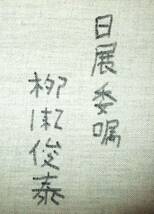 日展委嘱
柳瀬俊泰